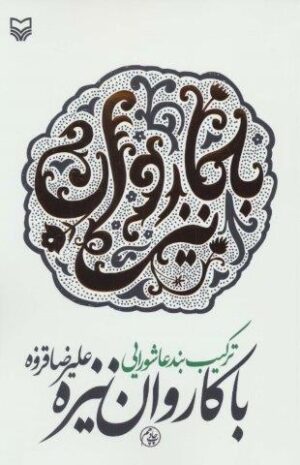 با کاروان نیزه
ترکیب بند عاشورایی
علیرضا قزوه
با کاروان نیزه